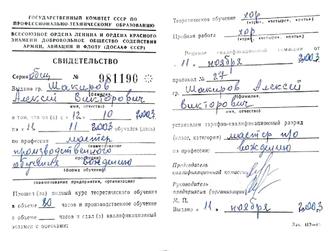 ГОСУДАРСТВЕННЫЙ КОМИТЕТ СССР ПО
ПРОФЕССИОНАЛЬНО-ТЕХНИЧЕСКОМУ ОБРАЗОВАНИЮ
ВСЕСОЮЗНОЕ ОРДЕНА ЛЕНИНА И ОРДЕНА КРАСНОГО
ЗНАМЕНИ ДОБРОВОЛЬНОЕ ОБЩЕСТВО СОДЕЙСТВИЯ
АРМИИ, АВИАЦИИ И ФЛОТУ (ДОСААФ СССР)
СВИДЕТЕЛЬСТВО
Серия общ № 981190
Выдано гр. Шакиров
Алексей Викторович
имя, отчество
в том, что он (а) с 12. 10 2003
по 11 ноября 2003 обучался (лась)
по профессии мастер
производственного
обучения вождению
(форма обучения)
наименование предприятия, организации
Прошел (ла) полный курс теоретического обучения
в объеме 80 часов и производственного обучения
в объеме часов и сдал (а) квалификационный
экзамен с оценками:
Теоретическое обучение хор
Пробная работа хор
11 ноября 2003
протокол № 27
Шакиров Алексей
Викторович
имя, отчество
установлен тарифно-квалификационный разряд
(класс, категория) мастер п/о
вождению
Председатель
квалификационной
комиссии
Руководитель
предприятия (организации)
М. П.
Выдано 11. ноября 2003